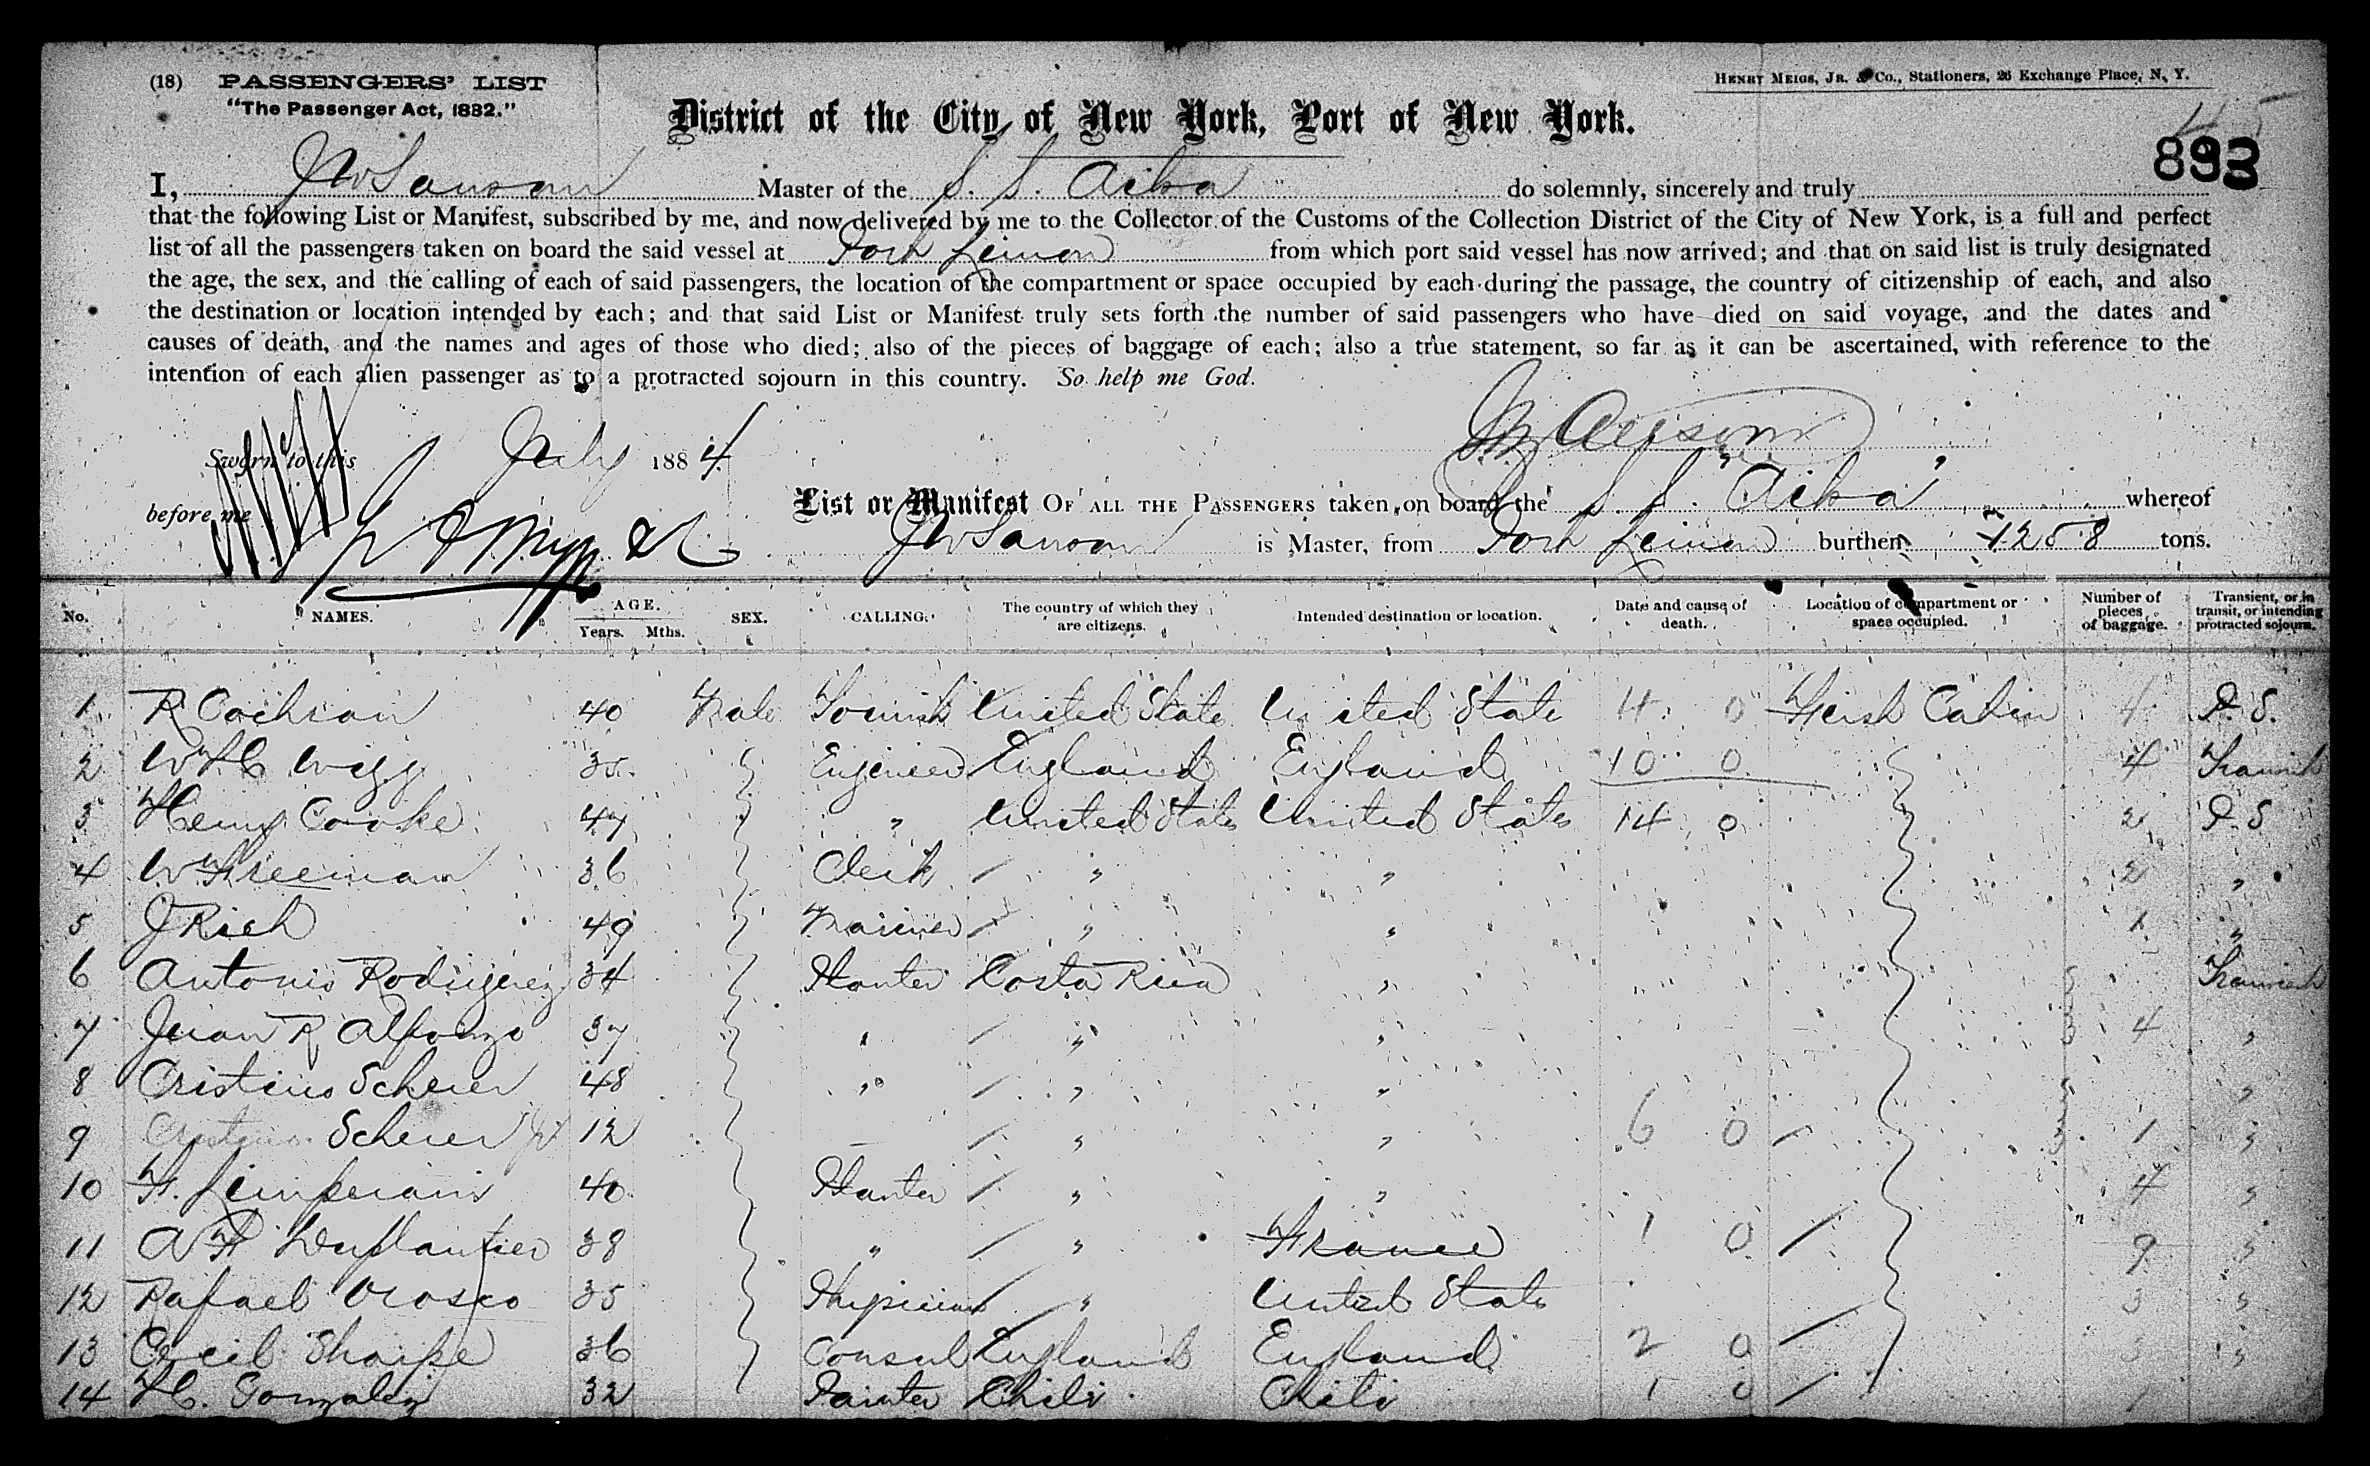 (18) PASSENGERS' LIST
"The Passenger Act, 1882."
HENRY MEIGS, JR. & Co., Stationers, 26 Exchange Place, N. Y.
District of the City of New York, Port of New York.
893
I, J W Sansom Master of the S. S. Ailsa do solemnly, sincerely and truly
that the following List or Manifest, subscribed by me, and now delivered by me to the Collector of the Customs of the Collection District of the City of New York, is a full and perfect
list of all the passengers taken on board the said vessel at Port Limon from which port said vessel has now arrived; and that on said list is truly designated
the age, the sex, and the calling of each of said passengers, the location of the compartment or space occupied by each during the passage, the country of citizenship of each, and also
the destination or location intended by each; and that said List or Manifest truly sets forth the number of said passengers who have died on said voyage, and the dates and
causes of death, and the names and ages of those who died; also of the pieces of baggage of each; also a true statement, so far as it can be ascertained, with reference to the
intention of each alien passenger as to a protracted sojourn in this country. So help me God.
Sworn to this July 1884
before me
List or Manifest OF ALL THE PASSENGERS taken on board the S. S. "Ailsa" whereof
J W Sansom is Master, from Port Limon burthen 1258 tons.
No. NAMES. AGE. Years. Mths. SEX. CALLING. The country of which they are citizens. Intended destination or location. Date and cause of death. Location of compartment or space occupied. Number of pieces of baggage. Transient, or in transit, or intending protracted sojourn.
1 R Cochran 40 Male Tourist United State United State 4 0 First Cabin 4 P. S.
2 W H C Wigg 35 Engineer England England 10 0 4 Transient
3 Henry Cooke 47 " United States United States 14 0 2 P. S
4 W Freeman 36 Clerk " " 2 "
5 J Rich 49 Mariner " " 1 "
6 Antonio Rodriguez 34 Planter Costa Rica " Transient
7 Juan R Alfonzo 37 " " " 4 "
8 Cristino Scherer 48 " " " "
9 Cristino Scherer Jr 12 — " " 6 0 1 "
10 F. Limperani 40 Planter " " 4 "
11 A F Duplantier 38 " " France 1 0 9 "
12 Rafael Orosco 35 Physician " United State 3 "
13 Cecil Sharpe 36 Consul England England 2 0 3 "
14 H. Gonzalez 32 Painter Chili Chili 1 0 1